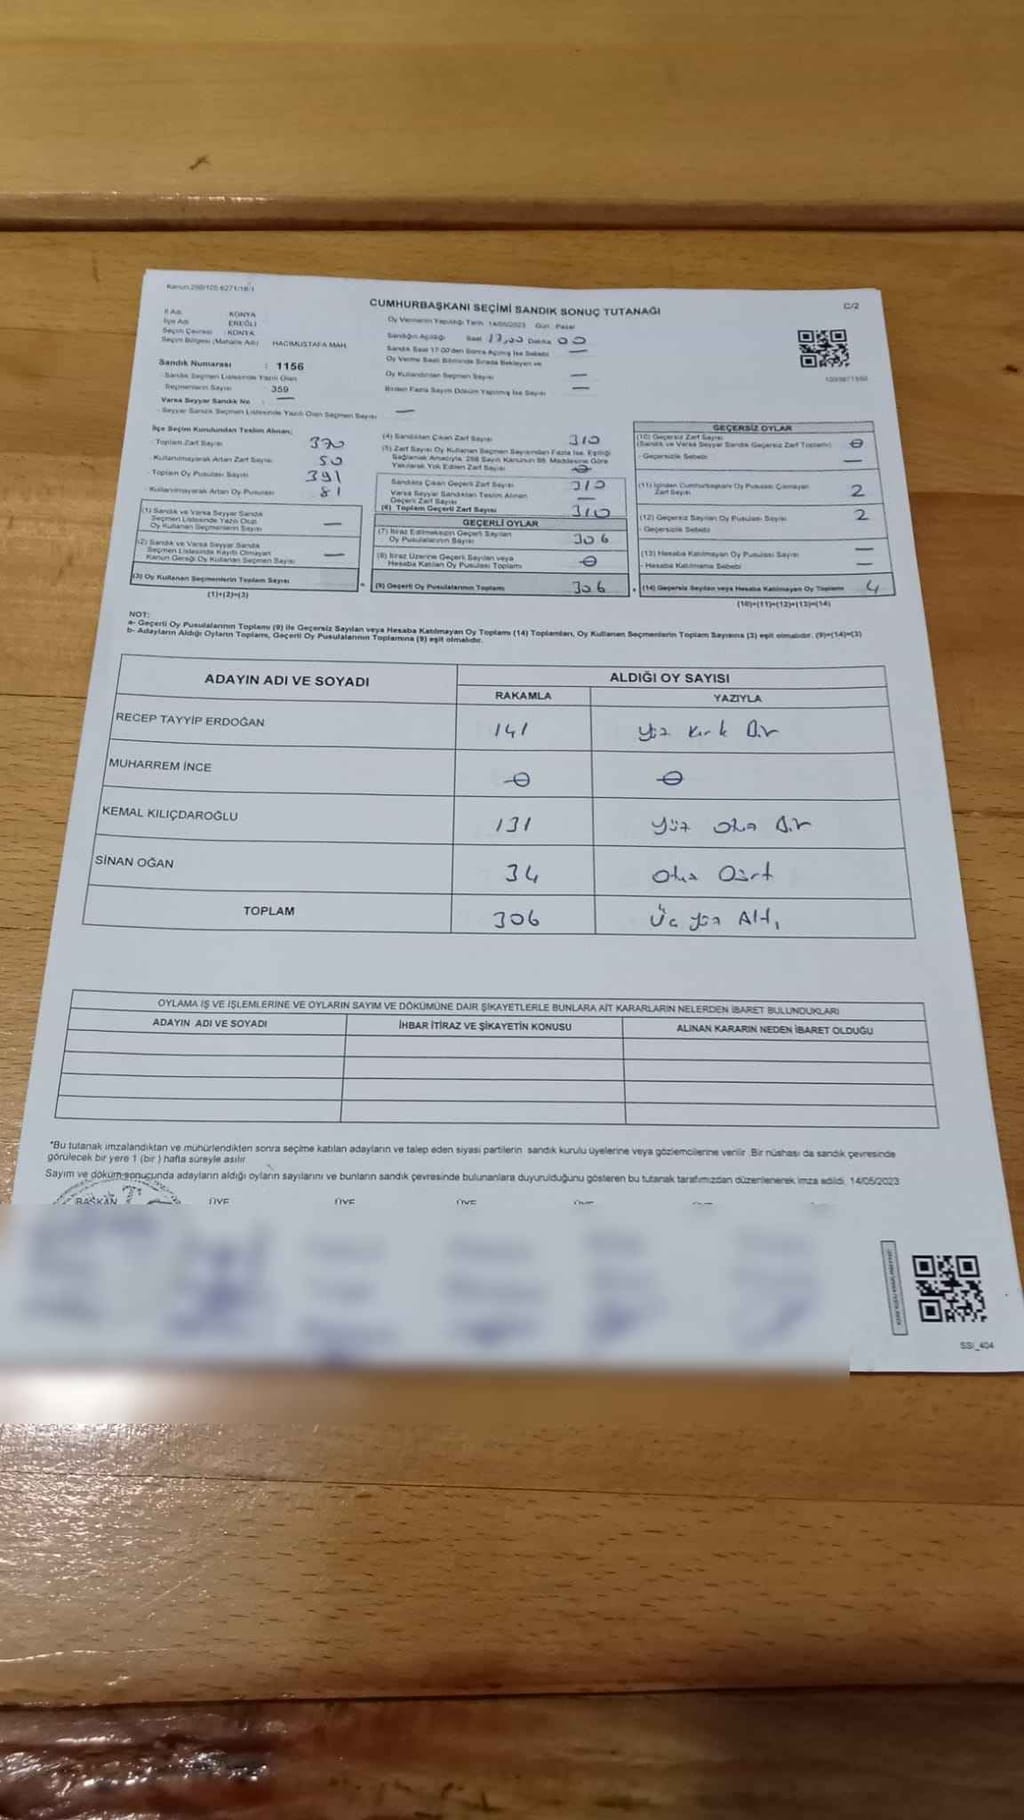 CUMHURBAŞKANI SEÇİMİ SANDIK SONUÇ TUTANAĞI
C/2
İl Adı : KONYA
İlçe Adı : EREĞLİ
Seçim Çevresi : KONYA
Seçim Bölgesi (Mahalle Adı) : HACIMUSTAFA MAH.
Sandık Numarası : 1156
Sandık Seçmen Listesinde Yazılı Olan
Seçmenlerin Sayısı : 359
Varsa Seyyar Sandık No : —
Seyyar Sandık Seçmen Listesinde Yazılı Olan Seçmen Sayısı : —
Oy Vermenin Yapıldığı Tarih : 14/05/2023 Gün : Pazar
Sandığın Açıldığı Saat 17,00 Dakika 00
Sandık Saat 17:00'den Sonra Açılmış İse Sebebi —
Oy Verme Saati Bitiminde Sırada Bekleyen ve
Oy Kullandırılan Seçmen Sayısı —
Birden Fazla Sayım Döküm Yapılmış İse Sayısı —
İlçe Seçim Kurulundan Teslim Alınan;
- Toplam Zarf Sayısı 370
- Kullanılmayarak Artan Zarf Sayısı 50
- Toplam Oy Pusulası Sayısı 391
- Kullanılmayarak Artan Oy Pusulası 81
(1) Sandık ve Varsa Seyyar Sandık
Seçmen Listesinde Yazılı Olup
Oy Kullanan Seçmenlerin Sayısı —
(2) Sandık ve Varsa Seyyar Sandık
Seçmen Listesinde Kayıtlı Olmayan
Kanun Gereği Oy Kullanan Seçmen Sayısı —
(3) Oy Kullanan Seçmenlerin Toplam Sayısı
(1)+(2)=(3)
(4) Sandıktan Çıkan Zarf Sayısı 310
(5) Zarf Sayısı Oy Kullanan Seçmen Sayısından Fazla İse, Eşitliği
Sağlamak Amacıyla, 298 Sayılı Kanunun 98. Maddesine Göre
Yakılarak Yok Edilen Zarf Sayısı 0
Sandıkta Çıkan Geçerli Zarf Sayısı 310
Varsa Seyyar Sandıktan Teslim Alınan
Geçerli Zarf Sayısı —
(6) Toplam Geçerli Zarf Sayısı 310
GEÇERLİ OYLAR
(7) İtiraz Edilmeksizin Geçerli Sayılan
Oy Pusulalarının Sayısı 306
(8) İtiraz Üzerine Geçerli Sayılan veya
Hesaba Katılan Oy Pusulası Toplamı 0
(9) Geçerli Oy Pusulalarının Toplamı 306
GEÇERSİZ OYLAR
(10) Geçersiz Zarf Sayısı
(Sandık ve Varsa Seyyar Sandık Geçersiz Zarf Toplamı) 0
- Geçersizlik Sebebi —
(11) İçinden Cumhurbaşkanı Oy Pusulası Çıkmayan
Zarf Sayısı 2
(12) Geçersiz Sayılan Oy Pusulası Sayısı 2
- Geçersizlik Sebebi
(13) Hesaba Katılmayan Oy Pusulası Sayısı —
- Hesaba Katılmama Sebebi —
(14) Geçersiz Sayılan veya Hesaba Katılmayan Oy Toplamı 4
(10)+(11)+(12)+(13)=(14)
NOT:
a- Geçerli Oy Pusulalarının Toplamı (9) ile Geçersiz Sayılan veya Hesaba Katılmayan Oy Toplamı (14) Toplamları, Oy Kullanan Seçmenlerin Toplam Sayısına (3) eşit olmalıdır. (9)+(14)=(3)
b- Adayların Aldığı Oyların Toplamı, Geçerli Oy Pusulalarının Toplamına (9) eşit olmalıdır.
ADAYIN ADI VE SOYADI ALDIĞI OY SAYISI
RAKAMLA YAZIYLA
RECEP TAYYİP ERDOĞAN 141 yüz kırk bir
MUHARREM İNCE 0 0
KEMAL KILIÇDAROĞLU 131 yüz otuz bir
SİNAN OĞAN 34 otuz dört
TOPLAM 306 Üç yüz Altı
OYLAMA İŞ VE İŞLEMLERİNE VE OYLARIN SAYIM VE DÖKÜMÜNE DAİR ŞİKAYETLERLE BUNLARA AİT KARARLARIN NELERDEN İBARET BULUNDUKLARI
ADAYIN ADI VE SOYADI İHBAR İTİRAZ VE ŞİKAYETİN KONUSU ALINAN KARARIN NEDEN İBARET OLDUĞU
*Bu tutanak imzalandıktan ve mühürlendikten sonra seçime katılan adayların ve talep eden siyasi partilerin sandık kurulu üyelerine veya gözlemcilerine verilir. Bir nüshası da sandık çevresinde
görülecek bir yere 1 (bir) hafta süreyle asılır.
Sayım ve döküm sonucunda adayların aldığı oyların sayılarını ve bunların sandık çevresinde bulunanlara duyurulduğunu gösteren bu tutanak tarafımızdan düzenlenerek imza edildi. 14/05/2023
BAŞKAN ÜYE ÜYE ÜYE
SSI_404